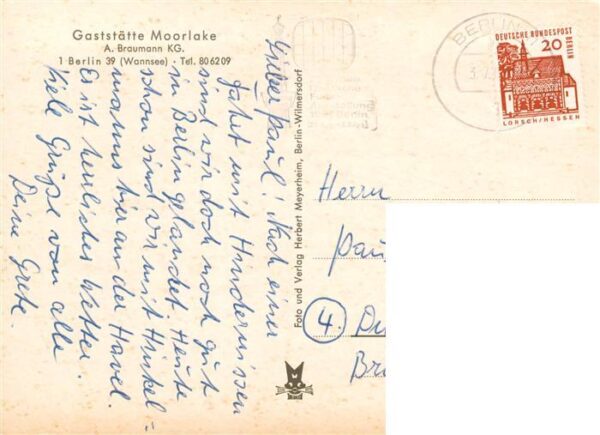 Gaststätte Moorlake
A. Braumann KG.
1 Berlin 39 (Wannsee) · Tel. 806209
Lieber Paul! Nach einer
Fahrt mit Hindernissen
sind wir doch noch gut
in Berlin gelandet. Heute
schon sind wir mit Hinkel=
manns hier an der Havel.
Es ist herrliches Wetter.
Viele Grüße von alle
Deine Grete.
Foto und Verlag Herbert Meyerheim, Berlin-Wilmersdorf
BERLIN
DEUTSCHE BUNDESPOST
BERLIN
20
LORSCH/HESSEN
Herrn
Pau
4. Du
Br